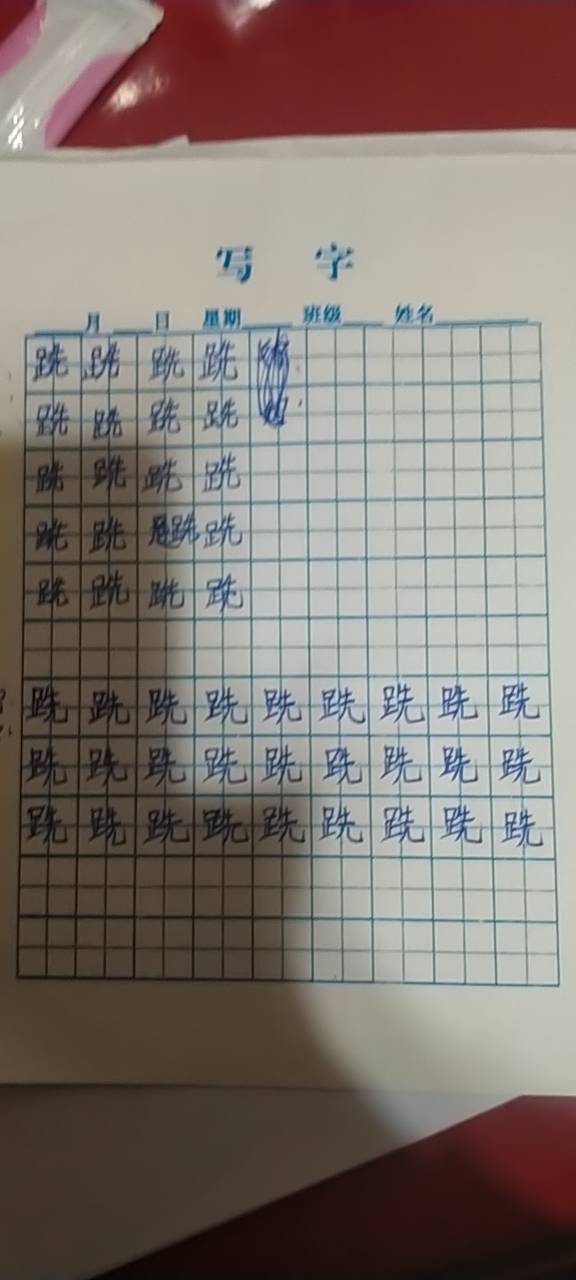 写 字
月 日 星期 班级 姓名
跣 跣 跣 跣
跣 跣 跣 跣
跣 跣 跣 跣
跣 跣 跣 跣
跣 跣 跣 跣
跣 跣 跣 跣 跣 跣 跣 跣 跣
跣 跣 跣 跣 跣 跣 跣 跣 跣
跣 跣 跣 跣 跣 跣 跣 跣 跣